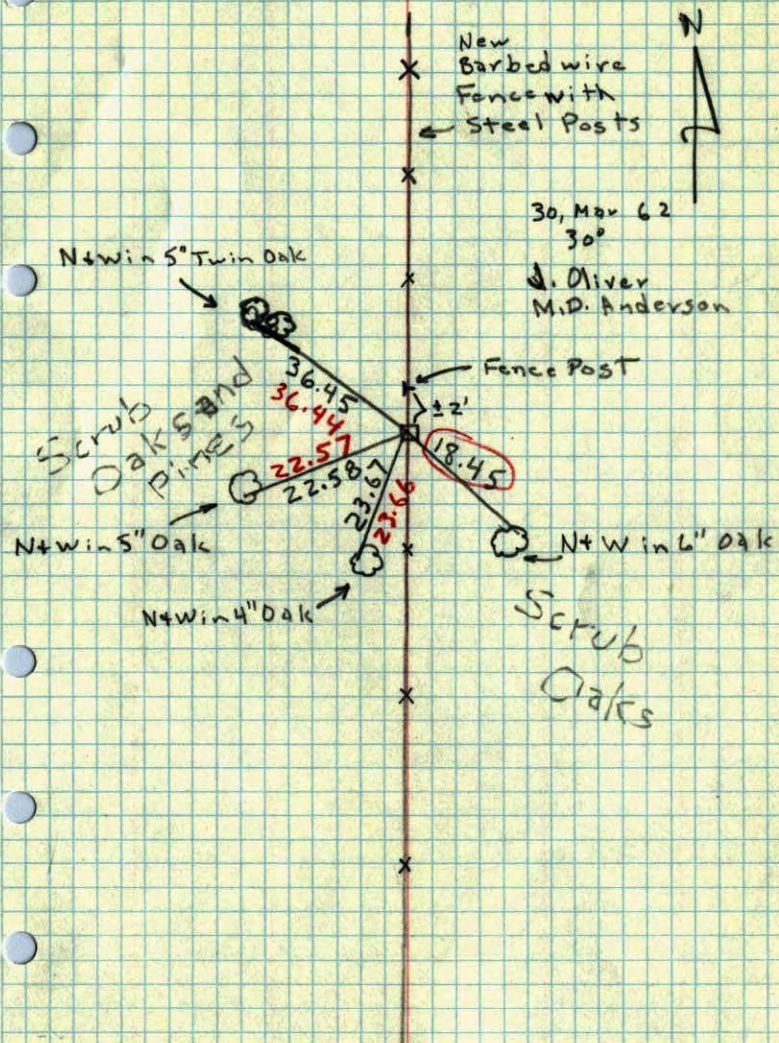 N
New
Barbed wire
Fence with
Steel Posts
30, Mar 62
30°
J. Oliver
M.D. Anderson
N+W in 5" Twin Oak
Fence Post
± 2'
36.45
36.44
Scrub
Oaks and
Pines
22.57
22.58
23.67
23.66
18.45
N+W in 5" Oak
N+W in 6" Oak
N+W in 4" Oak
Scrub
Oaks